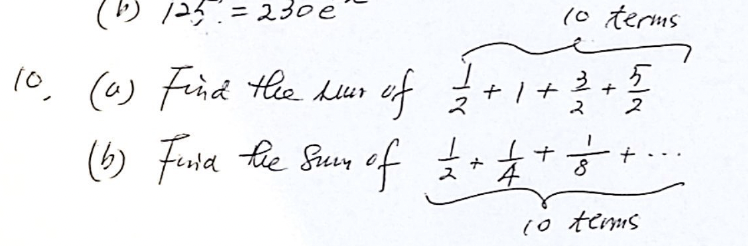 (b) 125 = 230e
10 terms
10. (a) Find the sum of 1/2 + 1 + 3/2 + 5/2
(b) Find the sum of 1/2 + 1/4 + 1/8 + ...
10 terms